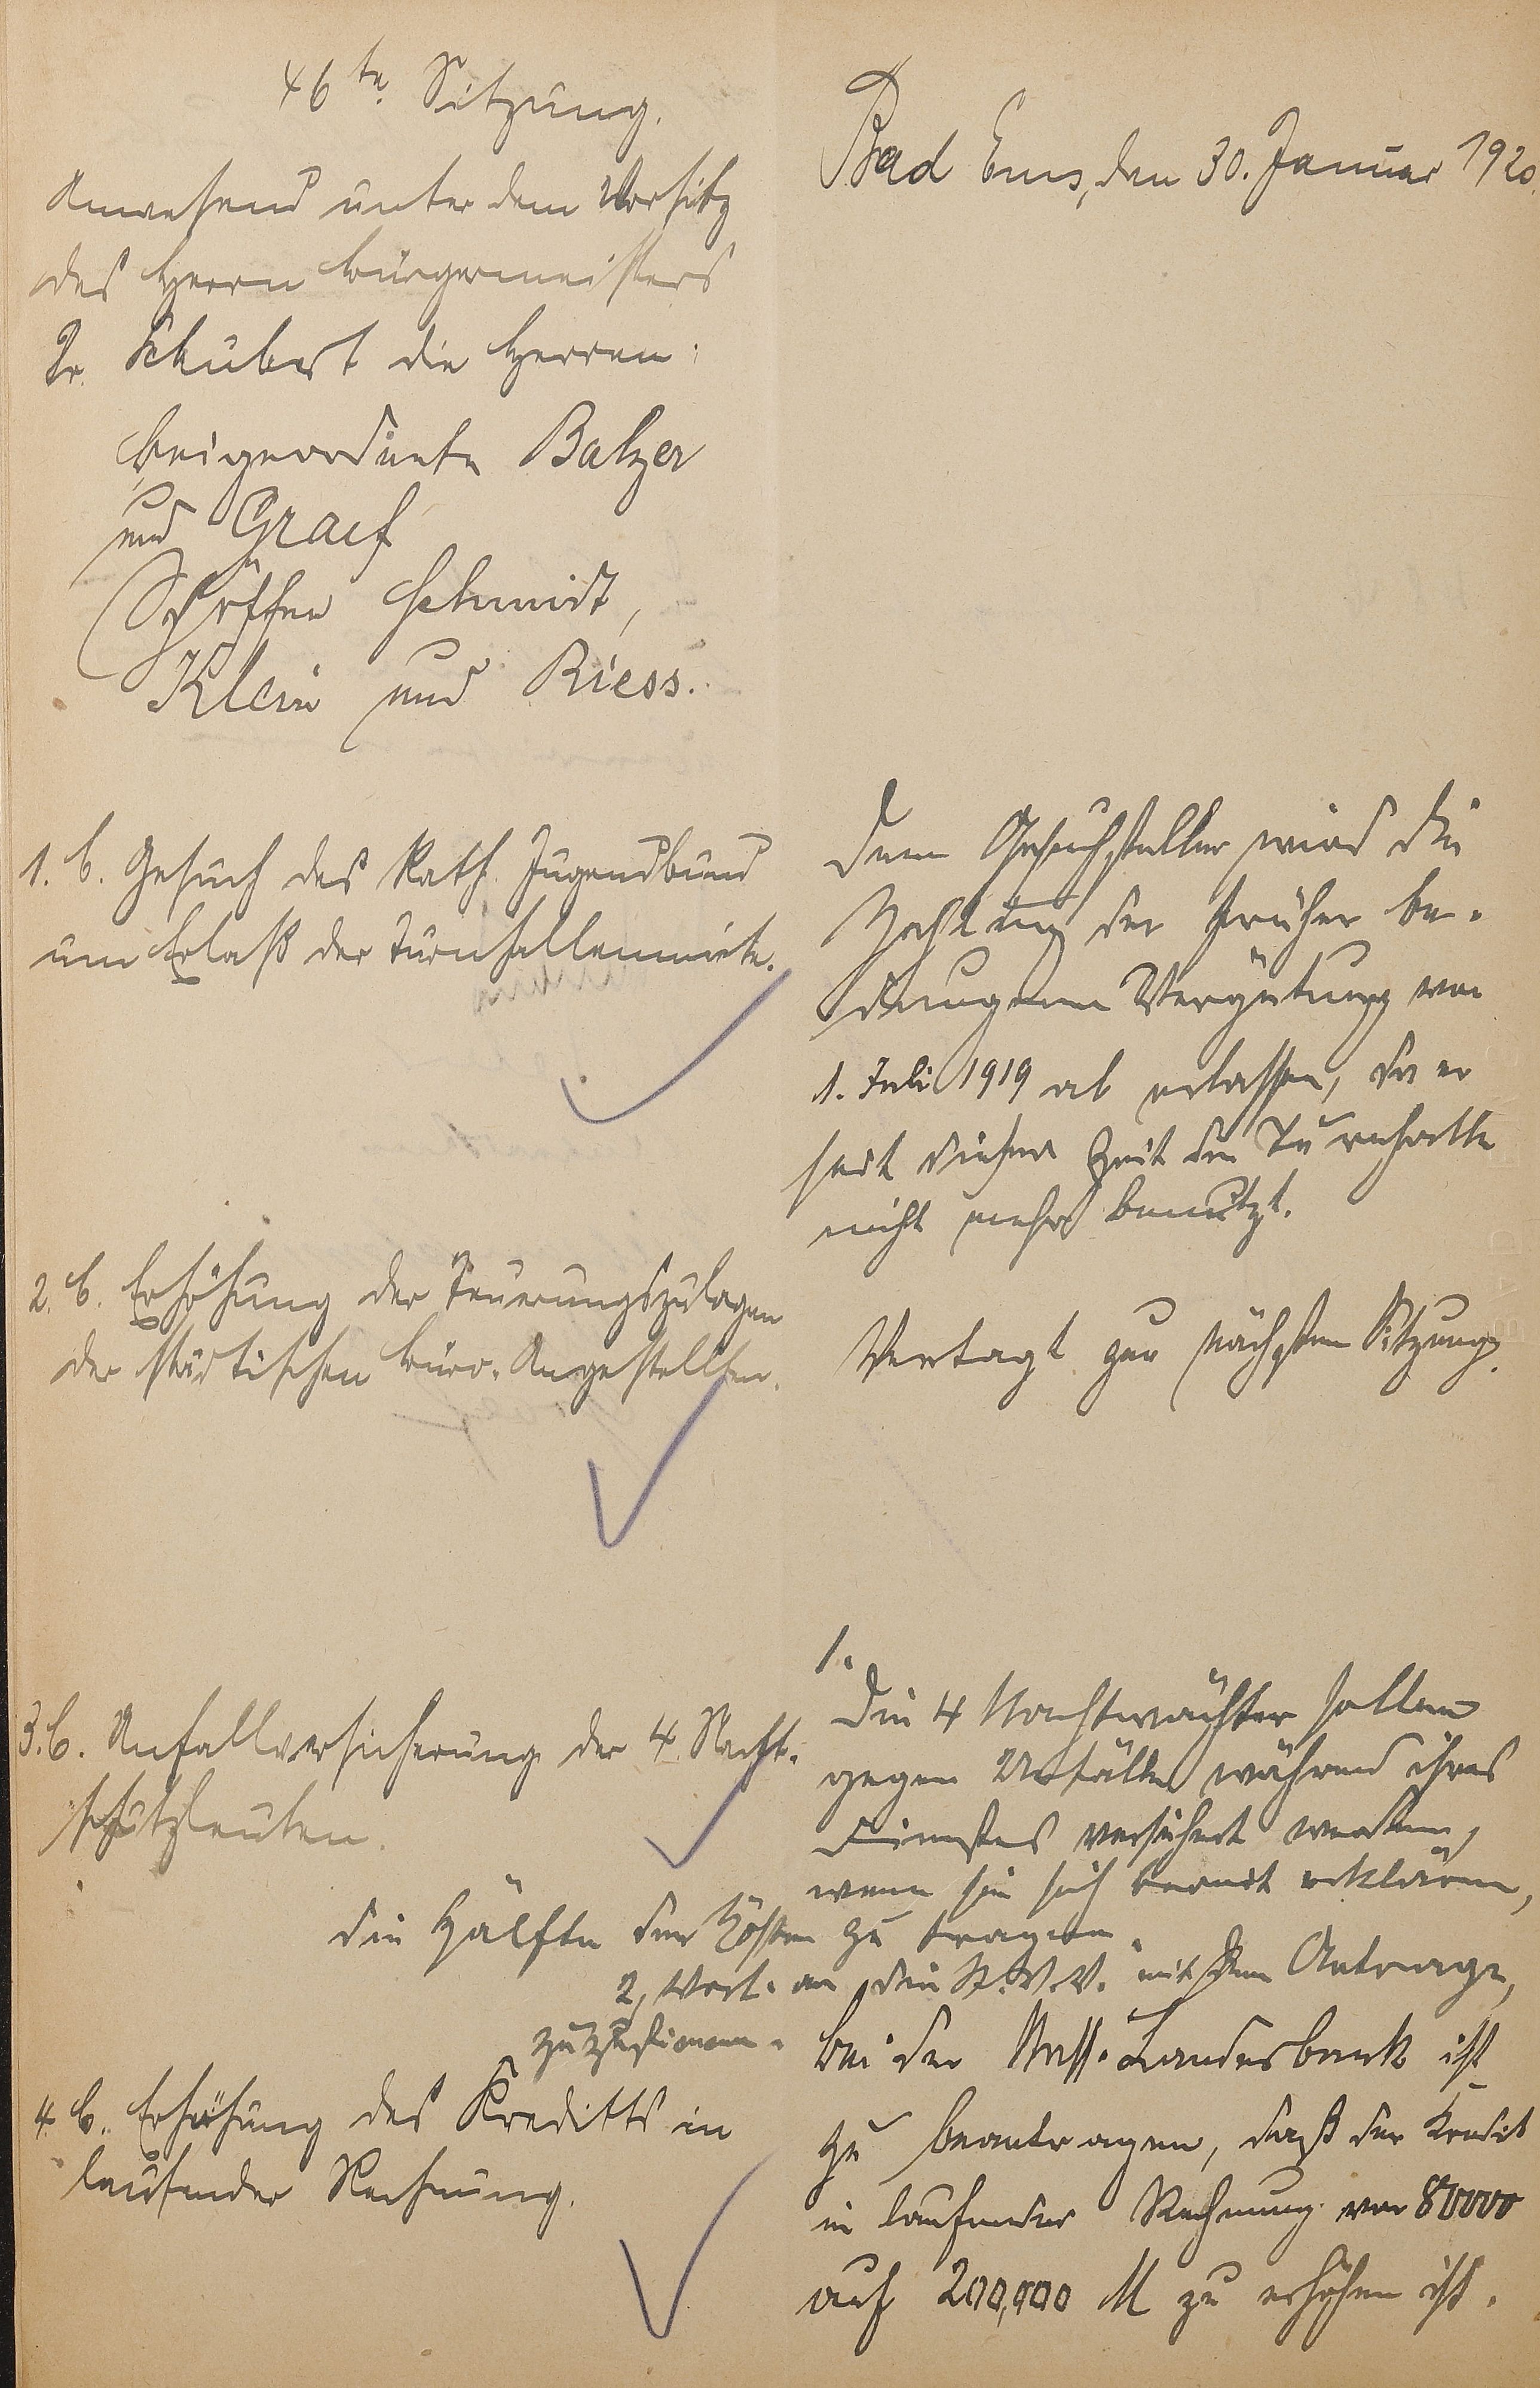 46te. Sitzung.
Bad Ems, den 30. Januar 1920.
Anwesend unter dem Vorsitz
des Herrn Bürgermeisters
Dr. Schubert die Herren:
Beigeordnete Balzer
und Graef
Schöffen Schmidt,
Klein und Riess.
1. b. Gesuch des Kath. Jugendbund
um Erlaß der Turnhallenmiete.
Dem Gesuchsteller wird die
Zahlung der früher be-
dungenen Vergütung vom
1. Juli 1919 ab erlassen, da er
seit dieser Zeit die Turnhalle
nicht mehr benutzt.
2. b. Erhöhung der Teuerungszulagen
der städtischen Büro-Angestellten.
Vertagt zur nächsten Sitzung.
3. b. Unfallversicherung der 4 Nacht-
schutzleuten.
1.
Die 4 Nachtwächter sollen
gegen Unfälle während ihres
Dienstes versichert werden,
wenn sie sich bereit erklären,
die Hälfte der Kosten zu tragen.
2, Vorl. an die St. V. V. mit dem Antrage,
zuzustimmen.
4. b. Erhöhung des Kreditts in
laufender Rechnung.
Bei der Nass. Landesbank ist
zu beantragen, daß der Kredit
in laufender Rechnung von 80000
auf 200,000 M zu erhöhen ist.